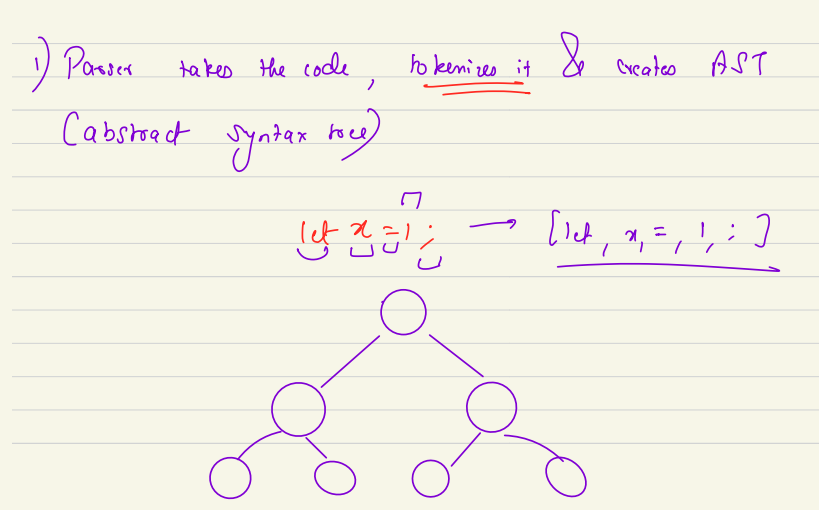 1) Parser takes the code, tokenizes it & creates AST
(abstract syntax tree)
let x = 1; → [let, x, =, 1, ; ]